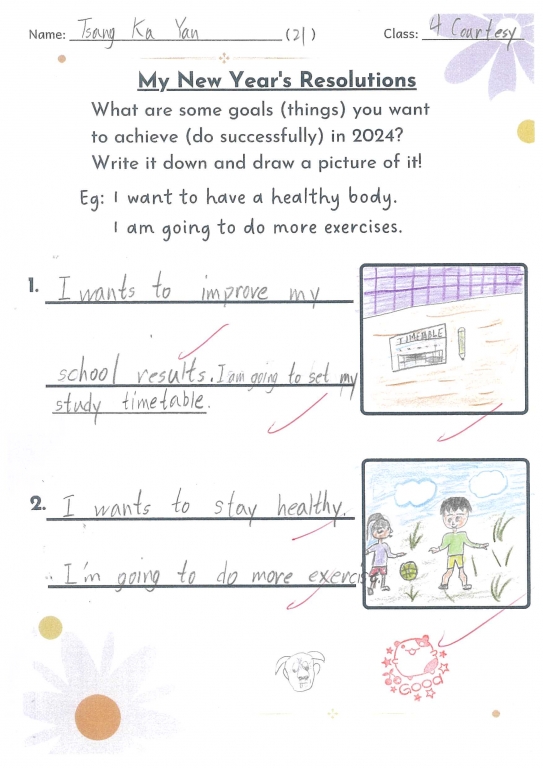 Name: Tsang Ka Yan (21) Class: 4 Courtesy
My New Year's Resolutions
What are some goals (things) you want
to achieve (do successfully) in 2024?
Write it down and draw a picture of it!
Eg: I want to have a healthy body.
I am going to do more exercises.
1. I wants to improve my
TIMETABLE
school results. I am going to set my
study timetable.
2. I wants to stay healthy.
I'm going to do more exercise.
Good